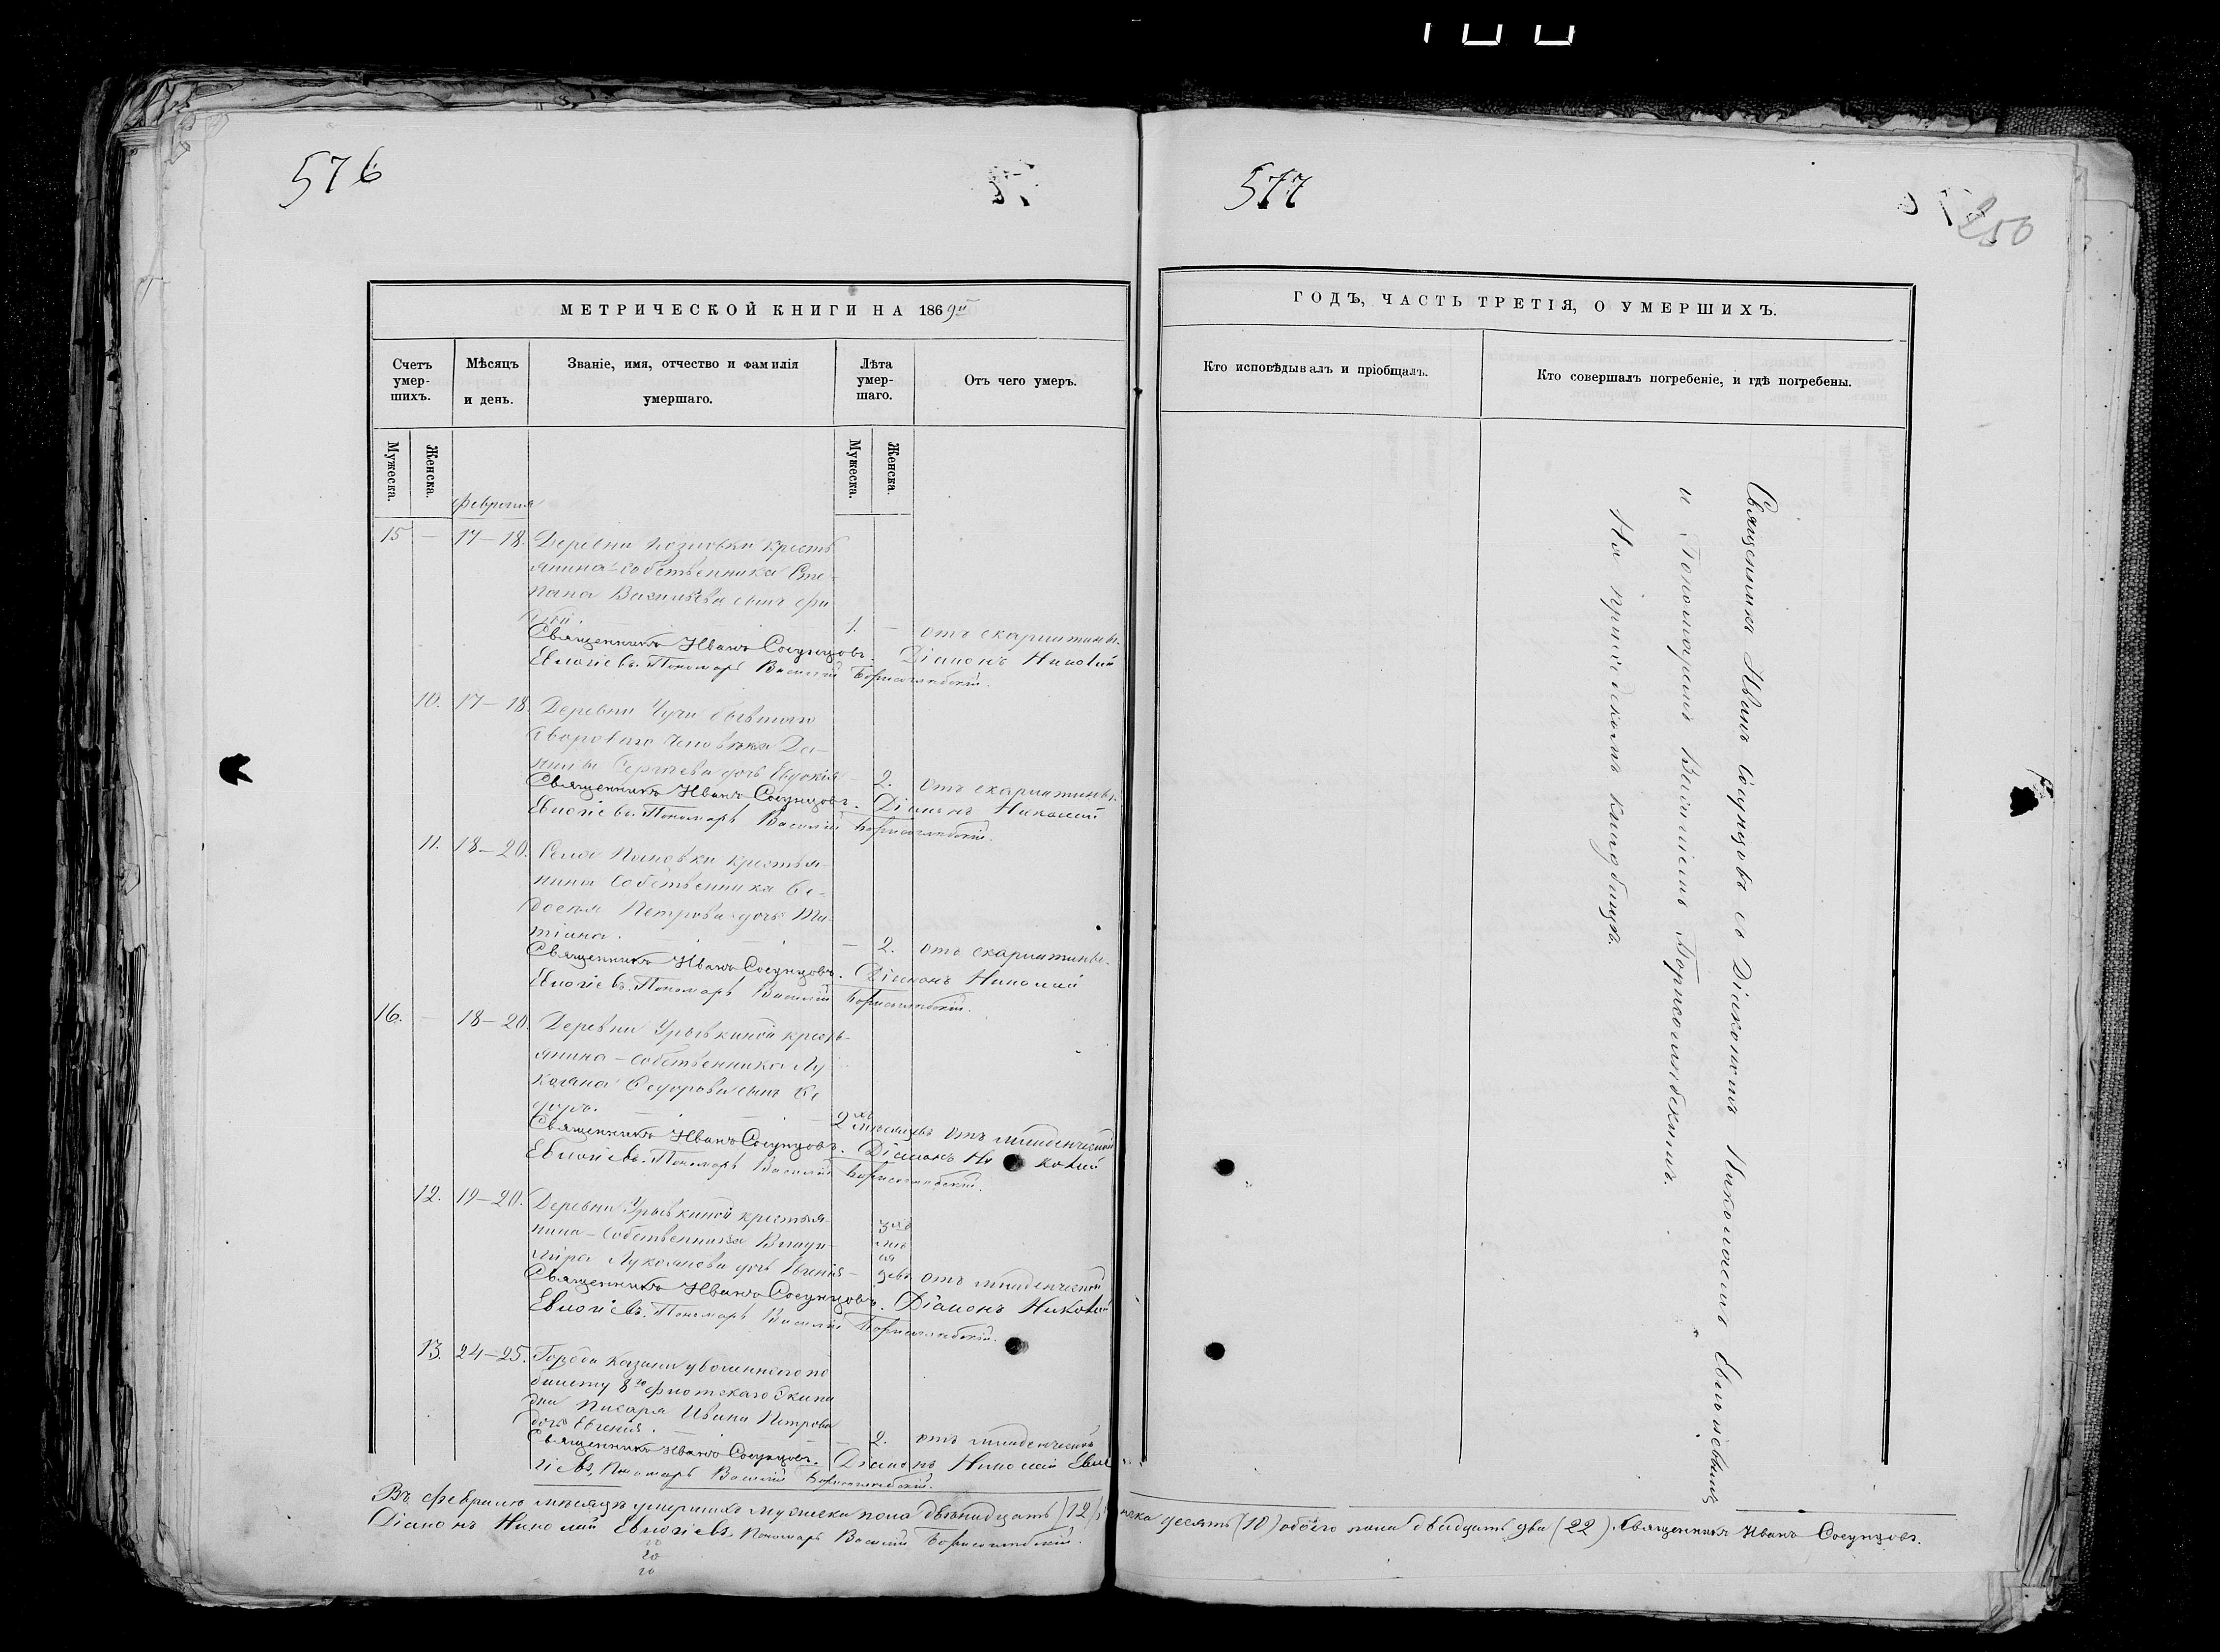 100
576
МЕТРИЧЕСКОЙ КНИГИ НА 1869й
Счетъ умер-шихъ.
Мѣсяцъ и день.
Званіе, имя, отчество и фамилія умершаго.
Лѣта умер-шаго.
Отъ чего умеръ.
Мужеска.
Женска.
Мужеска.
Женска.
Февраля
15 — 17–18. Деревни Козловки кресть
янина-собственника Сте
пана Васильева сынъ
1. — отъ скарлатины.
Священникъ Иванъ Сосунцовъ. Діаконъ Николай
Евлогіевъ. Пономарь Василій Борисоглѣбскій.
10. 17–18. Деревни Чучи бывшаго
двороваго человѣка Да-
нилы Сергѣева дочь Евдокія — 2. отъ скарлатины.
Священникъ Иванъ Сосунцовъ. Діаконъ Николай
Евлогіевъ. Пономарь Василій Борисоглѣбскій.
11. 18–20. Села Пановки крестья
нина собственника Ѳе-
досѣя Петрова дочь Та-
тіана. — 2. отъ скарлатины.
Священникъ Иванъ Сосунцовъ. Діаконъ Николай
Евлогіевъ. Пономарь Василій Борисоглѣбскій.
16. — 18–20. Деревни Урывкиной кресть-
янина-собственника Лу
кояна Ѳедорова сынъ Ѳе
доръ. — 2хъ мѣсяцевъ отъ младенческой
Священникъ Иванъ Сосунцовъ. Діаконъ Николай
Евлогіевъ. Пономарь Василій Борисоглѣбскій.
12. 19–20. Деревни Урывкиной крестья-
нина-собственника Влади-
міра Лукоянова дочь Евгенія — отъ младенческой
Священникъ Иванъ Сосунцовъ. Діаконъ Николай
Евлогіевъ. Пономарь Василій Борисоглѣбскій.
13. 24–25. Города Казани уволеннаго по
билету 8го флотскаго Экипа
жа писаря Ивана Петрова
дочь Евгенія. — 2. отъ младенческой
Священникъ Иванъ Сосунцовъ. Діаконъ Николай Евло
гіевъ, Пономарь Василій Борисоглѣбскій.
577
250
ГОДЪ, ЧАСТЬ ТРЕТІЯ, О УМЕРШИХЪ.
Кто исповѣдывалъ и пріобщалъ.
Кто совершалъ погребеніе, и гдѣ погребены.
Священникъ Иванъ Сосунцовъ съ Діакономъ Николаемъ Евлогіевымъ
и Пономаремъ Василіемъ Борисоглѣбскимъ.
На приходскомъ кладбищѣ.
Въ февралѣ мѣсяцѣ умершихъ мужеска пола двѣнадцать (12) женска десять (10) обоего пола двадцать два (22). Священникъ Иванъ Сосунцовъ.
Діаконъ Николай Евлогіевъ. Пономарь Василій Борисоглѣбскій.
20
20